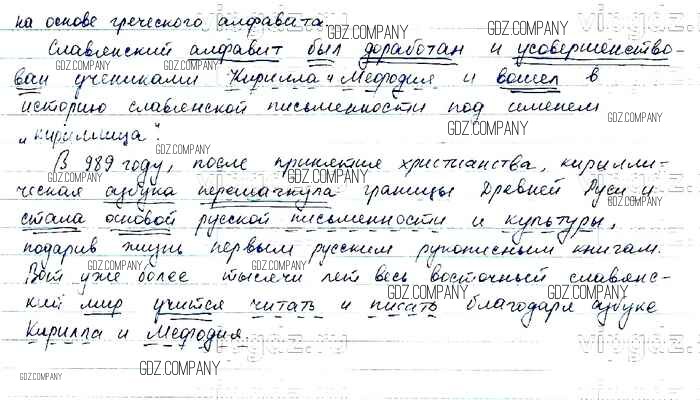 на основе греческого алфавита.
Славянский алфавит был доработан и усовершенство-
ван учениками Кирилла и Мефодия и вошел в
историю славянской письменности под именем
„кириллица“.
В 989 году, после принятия христианства, кирилли-
ческая азбука перешагнула границы Древней Руси и
стала основой русской письменности и культуры,
подарив жизнь первым русским рукописным книгам.
Вот уже более тысячи лет весь восточный славянс-
кий мир учится читать и писать благодаря азбуке
Кирилла и Мефодия.
GDZ.COMPANY